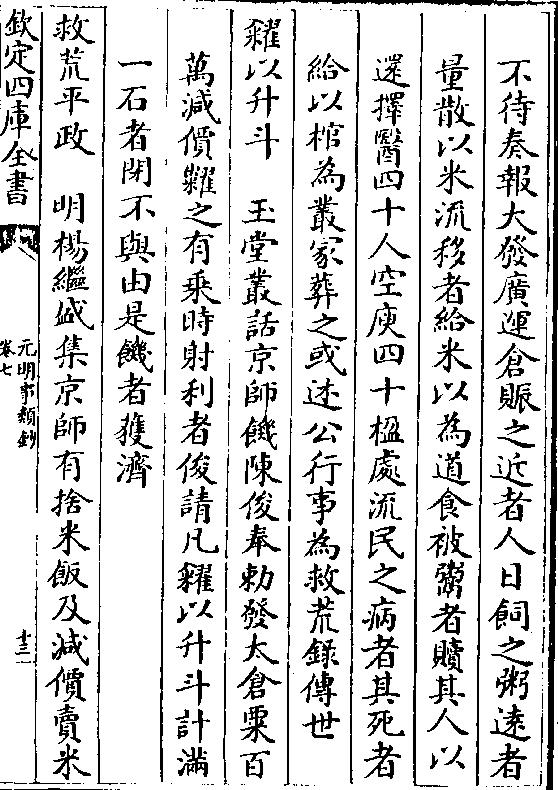 不待奏報大發廣運倉賑之近者人日飼之粥逺者
量散以米流移者給米以為道食被鬻者贖其人以
還擇醫四十人空庾四十楹處流民之病者其死者
給以棺為叢冢葬之或述公行事為救荒錄傳世
糴以升斗　玉堂叢話京師饑陳俊奉勅發大倉粟百
萬減價糶之有乗時射利者俊請凡糴以升斗計滿
一石者閉不與由是饑者獲濟
救荒平政　明楊繼盛集京師有捨米飯及減價賣米
欽定四庫全書
元明事類鈔
卷七
十三